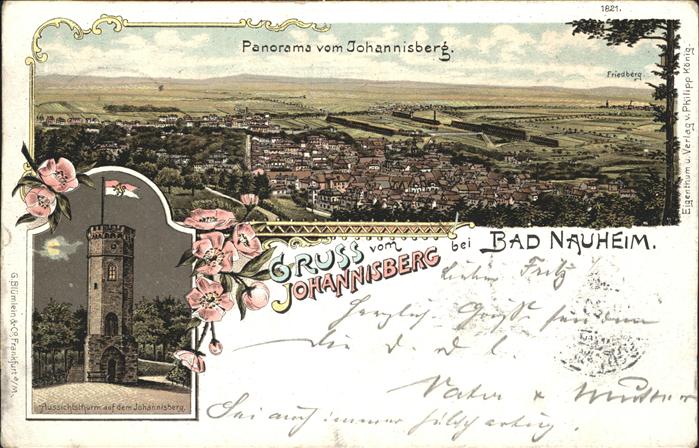 1821.
Panorama vom Johannisberg.
Friedberg.
Eigenthum u. Verlag v. Philipp König.
GRUSS vom JOHANNISBERG bei BAD NAUHEIM.
Lieber Fritz
Herzlich Grüße
die
Vater & Mutter
Sei auch immer hübsch artig.
Aussichtsthurm auf dem Johannisberg.
G. Blümlein & Co., Frankfurt a/M.